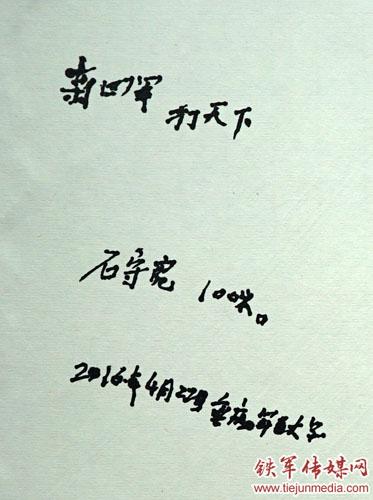 新四军
利天下
石守宽 100岁。
2016年4月22日重庆
铁军传媒网
www.tiejunmedia.com